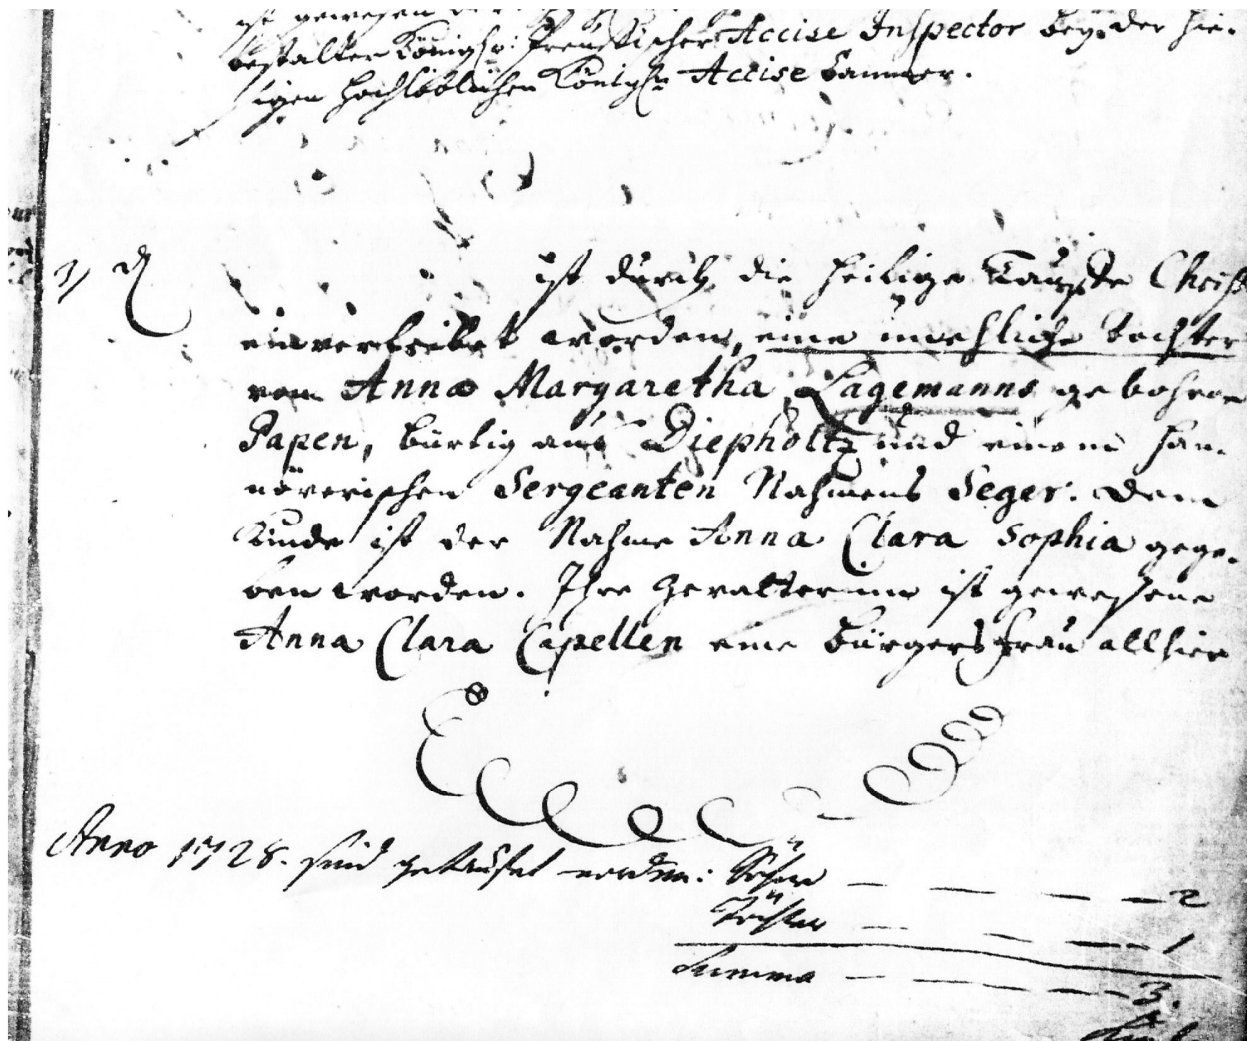 ist gewesen
bestalter Königl: Preussischer Accise Inspector bey der hie-
sigen Hochlöblichen Königl: Accise Cammer.
ist durch die heilige Tauffe Christo
einverleibet worden, eine unehliche Tochter
von Anna Margaretha Lagemanns gebohrne
Papen, bürtig aus Diepholtz und einem han-
növerischen Sergeanten Nahmens Seger. Dem
Kinde ist der Nahme Anna Clara Sophia gege-
ben worden. Ihre Gevatterinne ist gewesene
Anna Clara Capellen eine Bürgers Frau allhier
Anno 1728. sind getaufet worden: Söhne — — — — 2
Töchter — — — — 1
Summa — — — — 3.